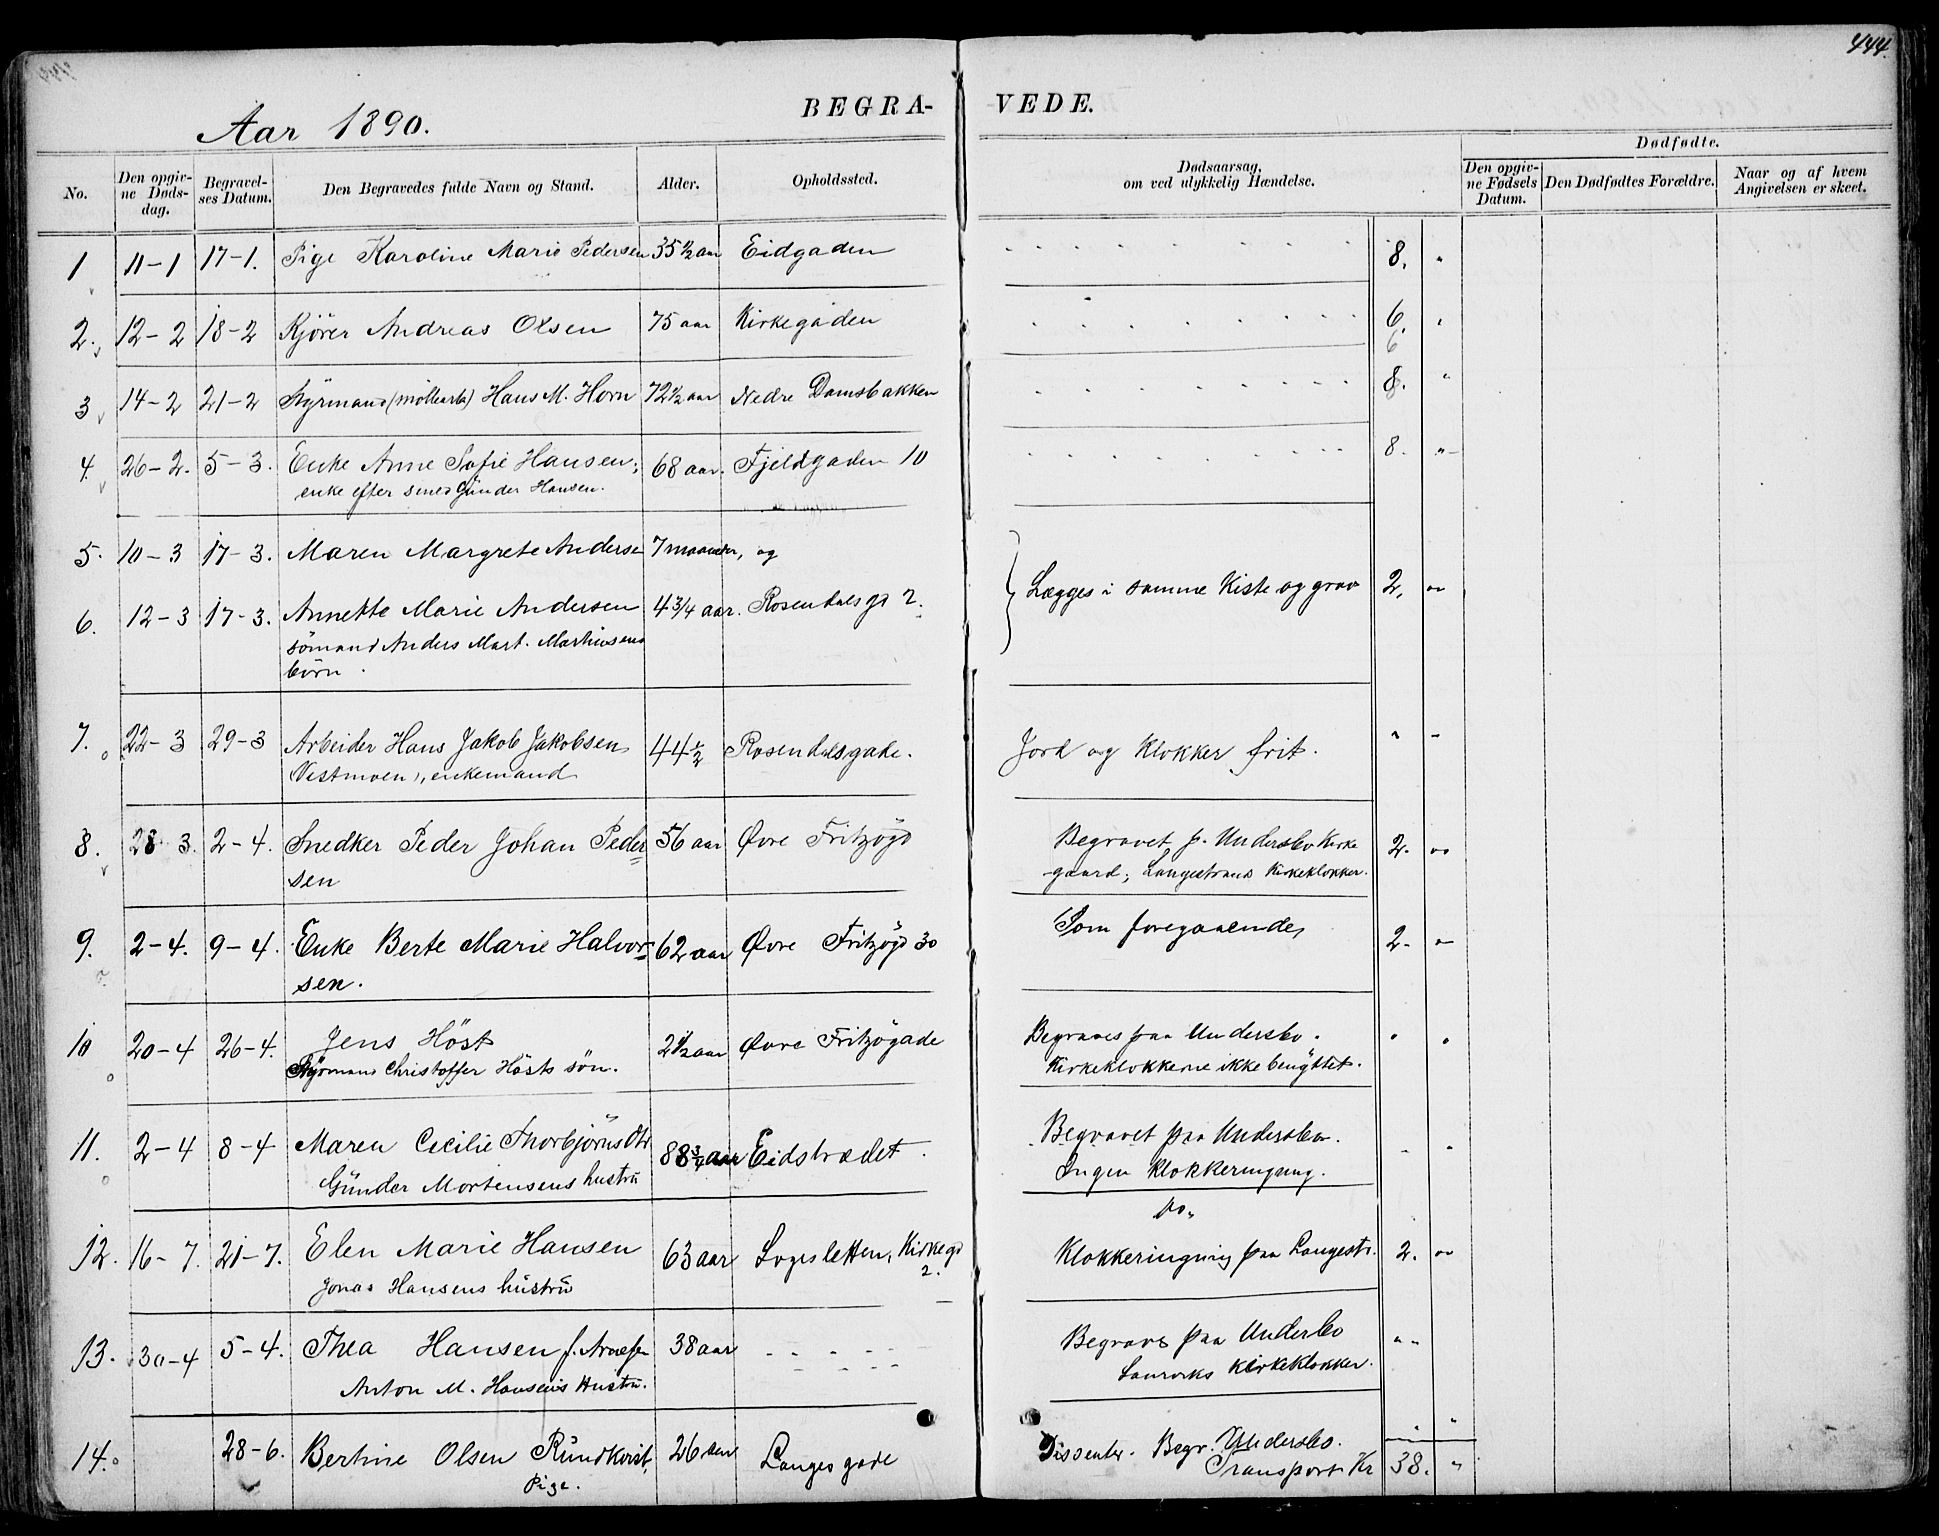 444.
Aar 1890.
BEGRA-VEDE.
No.
Den opgiv-
ne Døds-
dag.
Begravel-
ses Datum.
Den Begravedes fulde Navn og Stand.
Alder.
Opholdssted.
Dødsaarsag,
om ved ulykkelig Hændelse.
Dødfødte.
Den opgiv-
ne Fødsels
Datum.
Den Dødfødtes Forældre.
Naar og af hvem
Angivelsen er skeet.
1 11-1 17-1. Pige Karoline Marie Pedersen 35 1/2 aar Eidgaden 8. "
2. 12-2 18-2 Kjører Andreas Olsen 75 aar Kirkegaden 6. "
6
3 14-2 21-2 Styrmand (møllearb) Hans M. Horn 72 1/2 aar Nedre Damsbakken 8. "
4. 26-2. 5-3. Enke Anne Sofie Hansen; 68 aar. Fjeldgaden 10 8. "
enke efter smed Günder Hansen.
5. 10-3 17-3. Maren Margrete Anderse 7 maaneder, og
Lægges i samme Kiste og grav 2, "
6. 12-3 17-3. Annette Marie Andersen 4 3/4 aar. Rosendalsgd 2.
sömand Anders Mart. Mathisens
börn.
7. 22-3 29-3 Arbeider Hans Jakob Jakobsen 44 1/2 Rosendalsgade. Jord og Klokker frit. " "
(Vestmoen), enkemand
8. 28 3. 2-4. Snedker Peder Johan Peder= 56 aar Øvre Fritzögd Begravet p. Undersbo Kirke 2. "
sen gaard; Langestrands Kirkeklokker.
9. 2-4. 9-4. Enke Berte Marie Halvor= 62 aar Øvre Fritzögd 30 Som foregaaende, 2. "
sen.
10 20-4 26-4. Jens Höst 2 1/2 aar Øvre Fritzögade Begraves paa Undersbo. " "
Styrmand Christoffer Hösts sön. Kirkeklokkerne ikke benyttet.
11. 2-4 8-4 Maren Cecilie Thorbjörnsdtr 88 3/4 aar Eidstrædet. Begravet paa Undersbo. " "
Günder Mortensens hustrü Ingen Klokkeringning.
Do.
12. 16-7. 21-7. Elen Marie Hansen 63 aar Logesletten, Kirkegd Klokkeringning paa Langestr. 2. "
Jonas Hansens hüstrü 2.
13. 30-4 5-4. Thea Hansen f. Arnesen 38 aar Begraves paa Undersbo " "
Anton M. Hansens Hustrü. Laurviks Kirkeklokker.
14. 28-6. Bertine Olsen Rundkvist, 26 aar Langesgade Dissenter. Begr. Undersbo. " "
Pige. Transport Kr 38. "